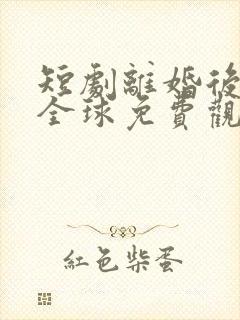 短劇離婚後
全球免費觀
紅色柴蛋